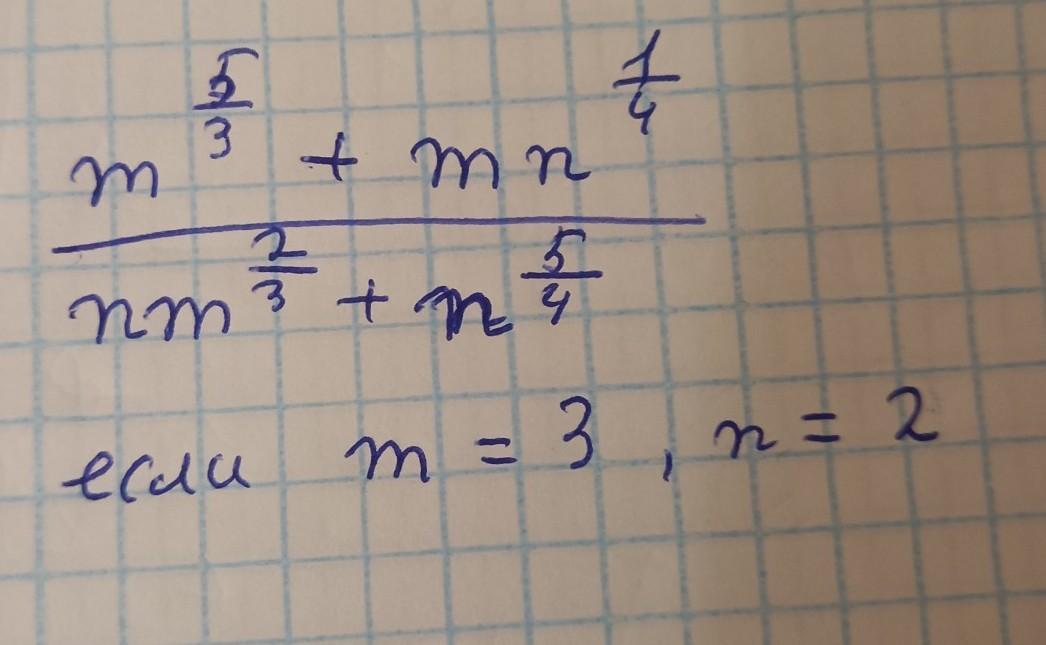 m^{5/3} + mn^{1/4}
nm^{2/3} + n^{5/4}
если m = 3, n = 2